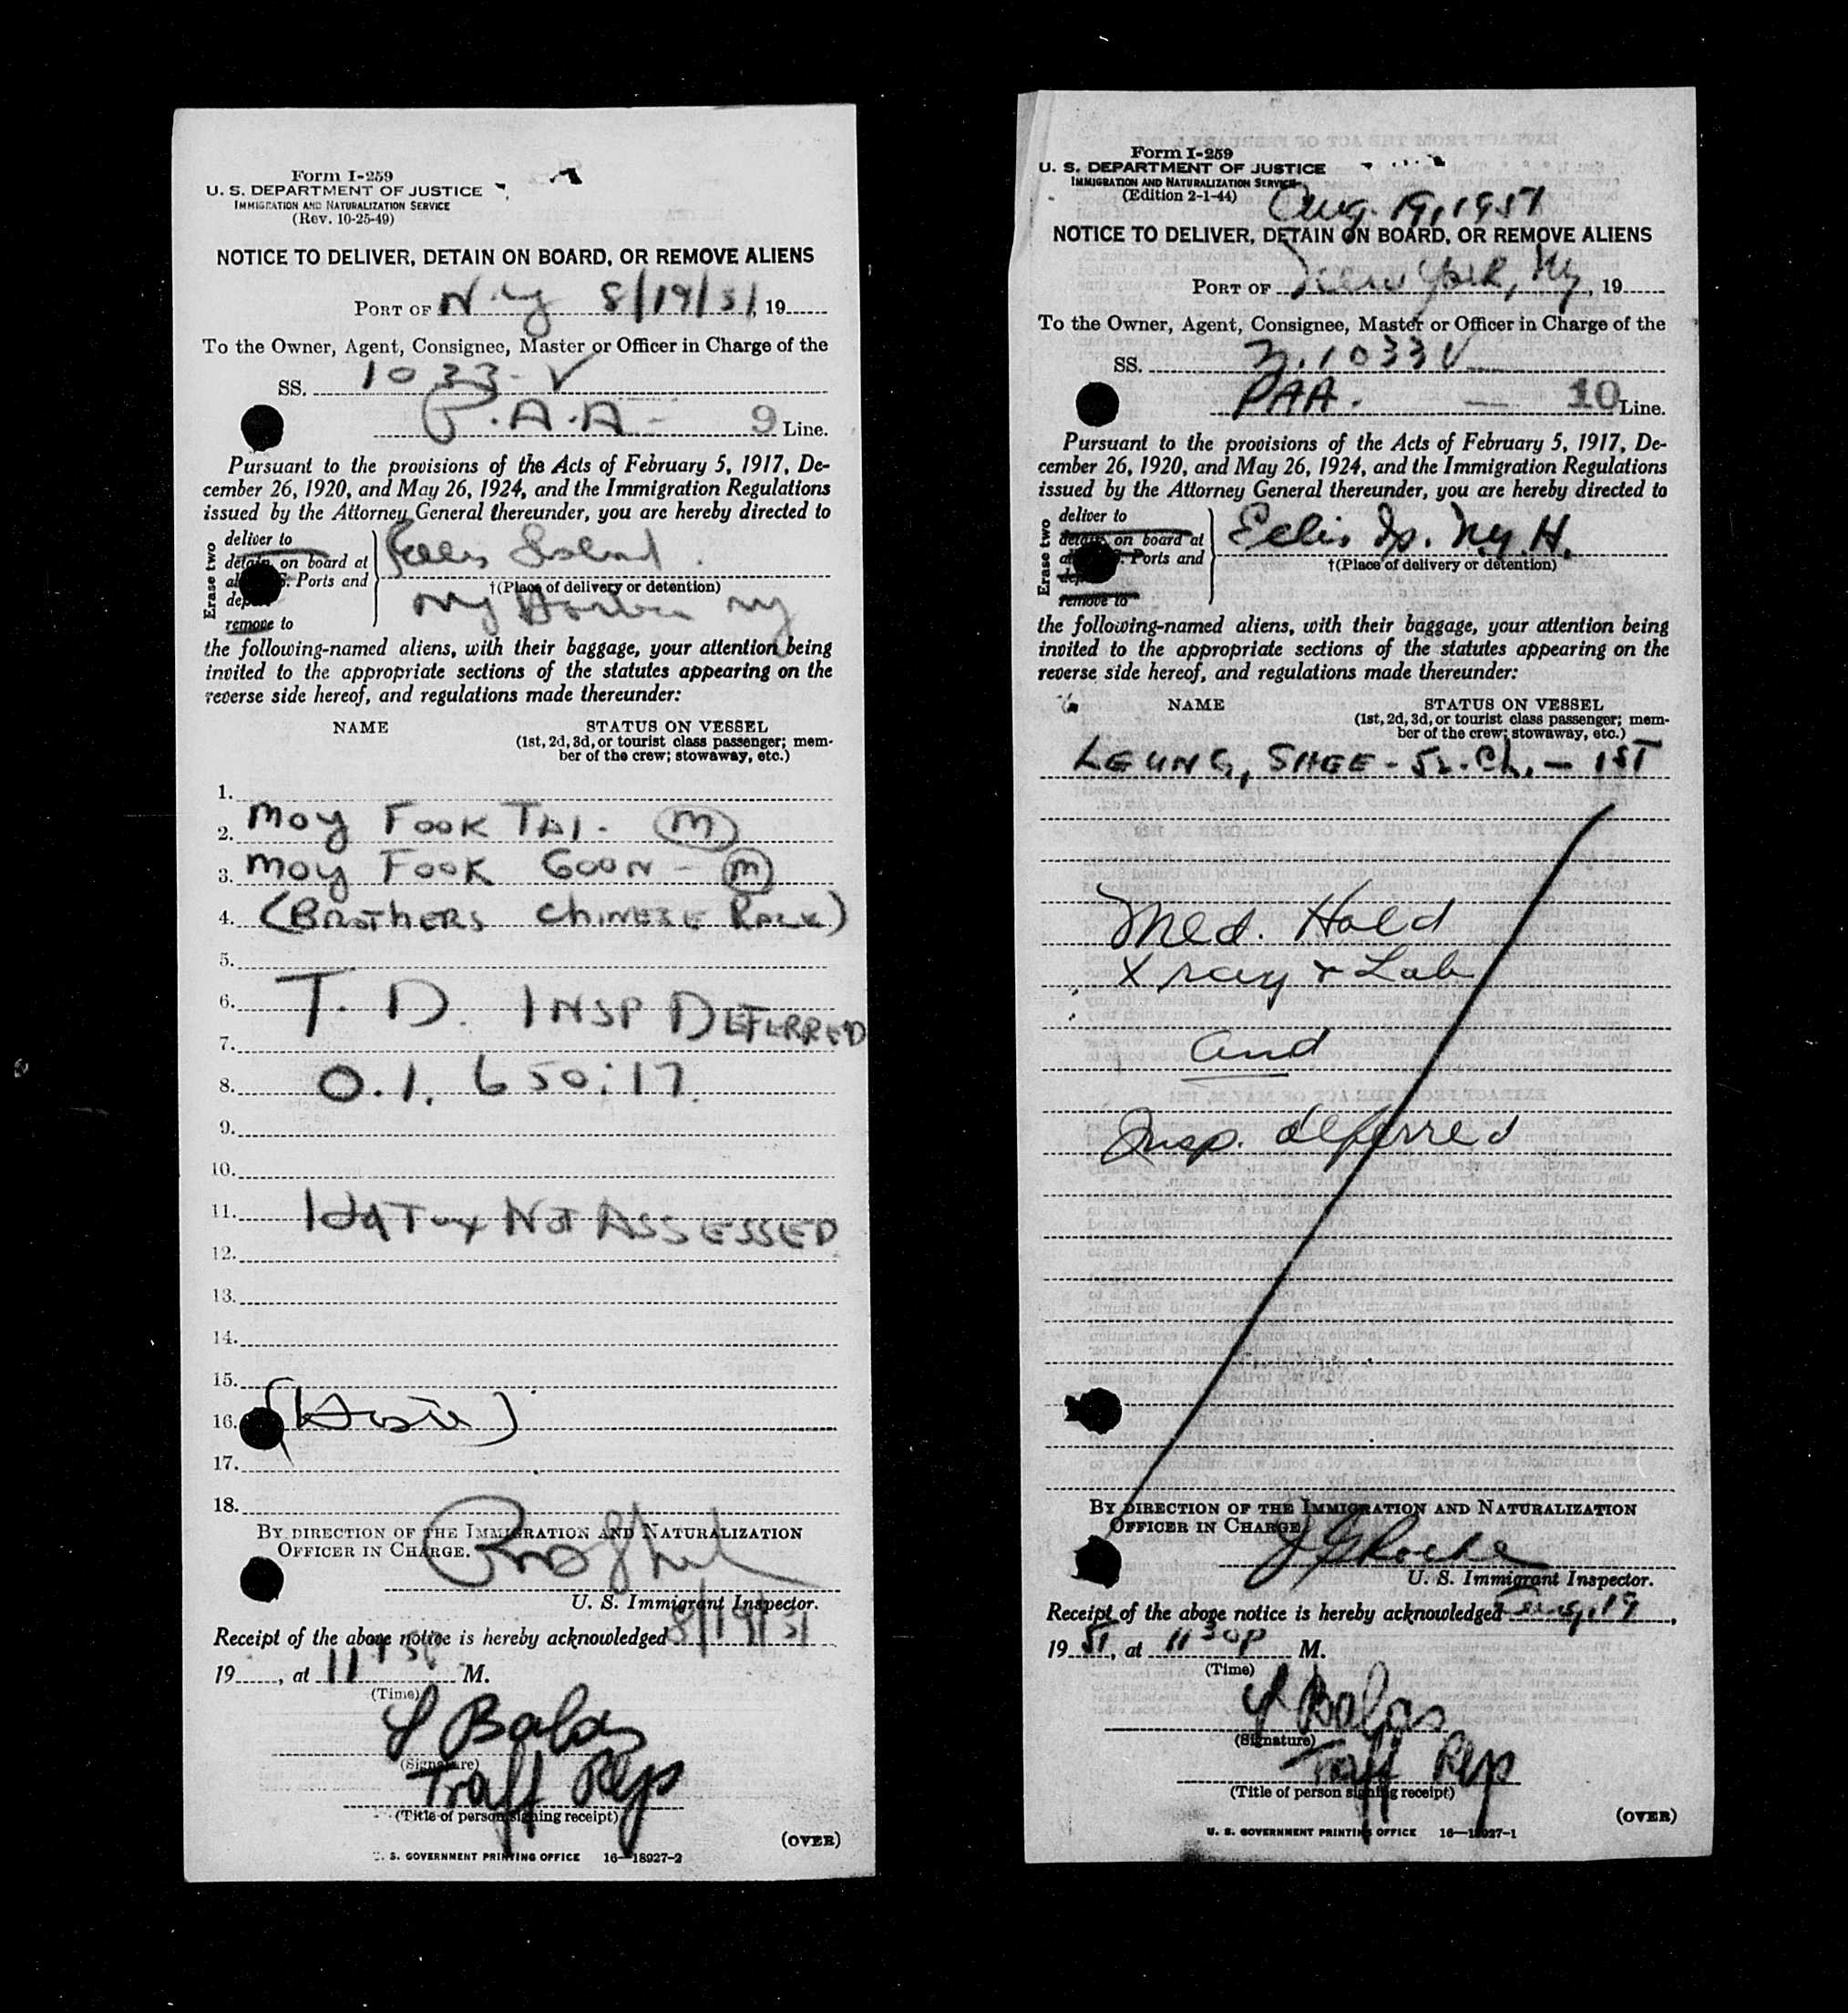 Form I-259
U. S. DEPARTMENT OF JUSTICE
IMMIGRATION AND NATURALIZATION SERVICE
(Rev. 10-25-49)
NOTICE TO DELIVER, DETAIN ON BOARD, OR REMOVE ALIENS
PORT OF N.Y 8/19/51, 19
To the Owner, Agent, Consignee, Master or Officer in Charge of the
SS. 1033-V
P.A.A- 9 Line.
Pursuant to the provisions of the Acts of February 5, 1917, De-
cember 26, 1920, and May 26, 1924, and the Immigration Regulations
issued by the Attorney General thereunder, you are hereby directed to
Erase two
deliver to
detain on board at
Ports and
remove to
Ellis Island
†(Place of delivery or detention)
NY Harbor NY
the following-named aliens, with their baggage, your attention being
invited to the appropriate sections of the statutes appearing on the
reverse side hereof, and regulations made thereunder:
NAME STATUS ON VESSEL
(1st, 2d, 3d, or tourist class passenger; mem-
ber of the crew; stowaway, etc.)
1.
2. MOY FOOK TAI. (M)
3. MOY FOOK GOON - (M)
4. (BROTHERS CHINESE RACE)
5.
6. T. D. INSP DEFERRED
7.
8. O.I. 650:17.
9.
10.
11. Hd Tax NOT ASSESSED
12.
13.
14.
15.
16.
17.
18.
BY DIRECTION OF THE IMMIGRATION AND NATURALIZATION
OFFICER IN CHARGE.
U. S. Immigrant Inspector.
Receipt of the above notice is hereby acknowledged 8/19/51
19, at 11 30P M.
(Time)
(Signature)
Traff Rep
(Title of person signing receipt)
(OVER)
U. S. GOVERNMENT PRINTING OFFICE 16—18927-2
Form I-259
U. S. DEPARTMENT OF JUSTICE
IMMIGRATION AND NATURALIZATION SERVICE
(Edition 2-1-44)
Aug. 19, 1951
NOTICE TO DELIVER, DETAIN ON BOARD, OR REMOVE ALIENS
PORT OF New York, NY, 19
To the Owner, Agent, Consignee, Master or Officer in Charge of the
SS. N.1033V
PAA. 10 Line.
Pursuant to the provisions of the Acts of February 5, 1917, De-
cember 26, 1920, and May 26, 1924, and the Immigration Regulations
issued by the Attorney General thereunder, you are hereby directed to
Erase two
deliver to
detain on board at
Ports and
remove to
Ellis Is. N.Y.H.
†(Place of delivery or detention)
the following-named aliens, with their baggage, your attention being
invited to the appropriate sections of the statutes appearing on the
reverse side hereof, and regulations made thereunder:
NAME STATUS ON VESSEL
(1st, 2d, 3d, or tourist class passenger; mem-
ber of the crew; stowaway, etc.)
LEUNG, SHEE - 52. Ch. - 1ST
Med. Hold
X ray & Lab
and
Insp. deferred
BY DIRECTION OF THE IMMIGRATION AND NATURALIZATION
OFFICER IN CHARGE
U. S. Immigrant Inspector.
Receipt of the above notice is hereby acknowledged Aug, 19,
19 51, at 11 30P M.
(Time)
(Signature)
Traff Rep
(Title of person signing receipt)
(OVER)
U. S. GOVERNMENT PRINTING OFFICE 16—18927-1